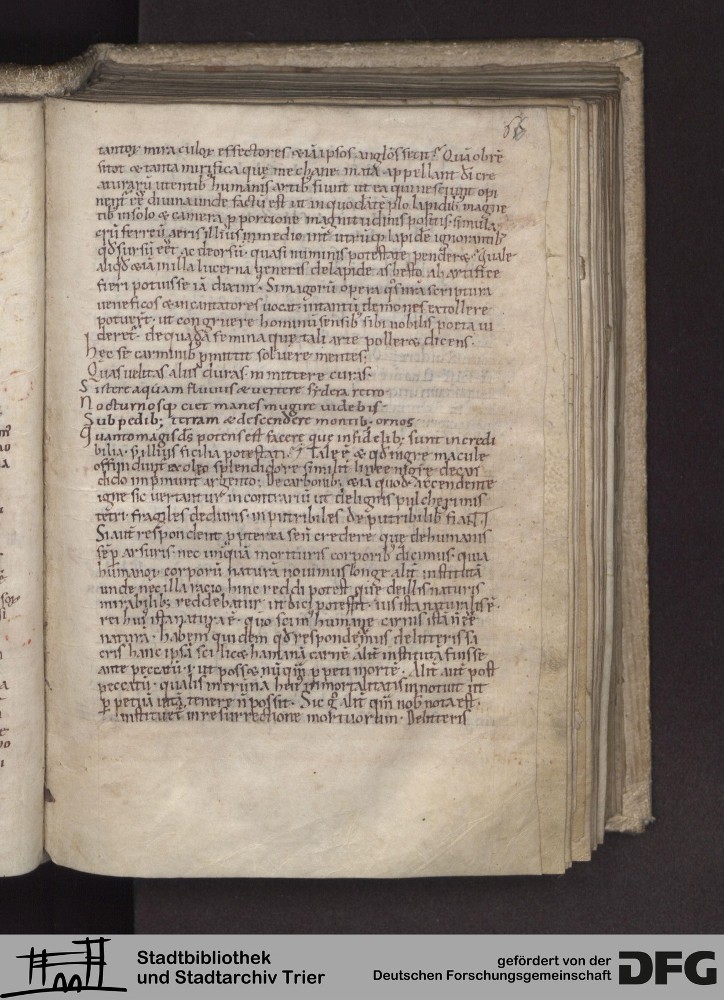 65
tantor miraculor effectores & iā ipsos anglos sentit. Quā obrē
sitot & tanta mirifica que mechane mata appellant dī cre
aturarū utentib; humanis artib; fiunt ut ea qui nesciunt opi
nent eē divina unde factū est ut in quodā tēplo lapidib; magne
tib in solo & camera p porcione magnitudinis positis simula
crū ferreū aeris illius in medio int utrūq; lapidē ignorantib;
qd sursū eēt ac deorsū quasi numinis potestate pender&. Quale
aliqd & iā in illa lucerna veneris de lapide asbesto ab artifice
fieri potuisse iā diximus. Si magorū opera qs nrā scriptura
veneficos & incantatores vocat intantū demones extollere
potuert. ut congruere hominū sensib; sibi nobilis poeta vi
deret. de quadā femina que tali arte poller& dicens.
Hec se carminib; pmittit solvere mentes.
Quas velit as aliis duras inmittere curas.
Sistere aquam fluviis & vertere sydera retro.
Nocturnosq; ciet manes mugire videbis.
Sub pedib; terram & descendere montib. ornos
Quanto magis ds potens est facere que infidelib; sunt incredi
bilia. s; illius facilia potestati. Tale ē & qd nigre macule
offendunt ex oleo splendidore similit linee nigre de can
dido inprimunt argento; De carbonib; & iā quod accendente
igne sic vertantur in contrariū ut de lignis pulcherrimis
tetri. fragiles de duris. inputribiles de putribilib; fiant.
Si aut respondent pterea se ñ credere que de humanis
sēp arsuris. nec unquā morituris corporib; dicimus. quia
humanor corporū naturā novimus longe alit institutā
unde nec illa racio hinc reddi potest que de illis naturis
mirabilib; reddebatur ut dici potest. vis ista naturalis ē.
rei hui ista natura ē. quo scim humane carnis istā ñ eē
naturā. habem quidem qd respondemus de litteris sa
cris hanc ipsā scilic& humanā carnē alit institutā fuisse
ante peccatū. i. ut poss& nūqm ppeti mortē. Alit aut post
peccatū. qualis in erūna hui mortalitatis innotuit ut
ppetuā vitā tenere ñ possit. Sic g alit qm nob nota est.
instituet in resurrectione mortuorum. De litteris
Stadtbibliothek
und Stadtarchiv Trier
gefördert von der
Deutschen Forschungsgemeinschaft
DFG